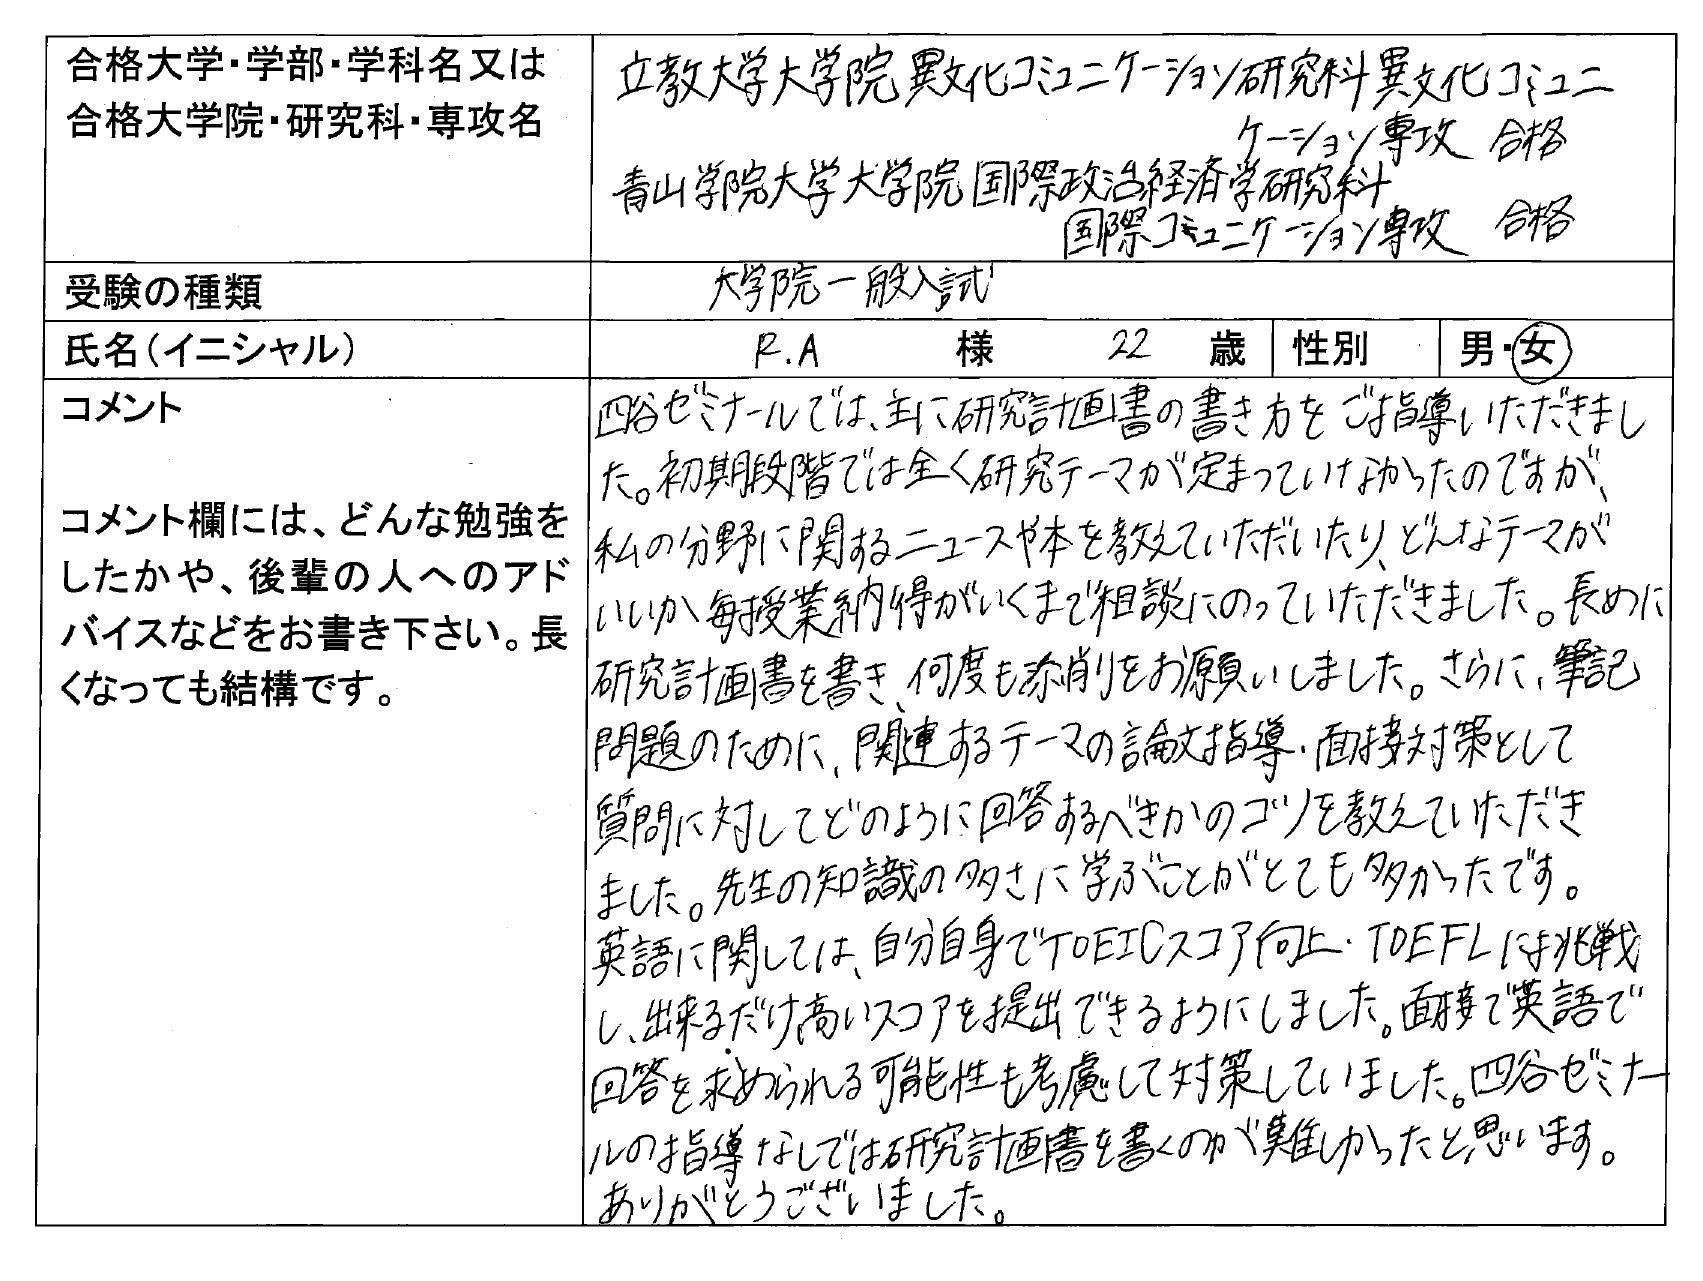 合格大学・学部・学科名又は
合格大学院・研究科・専攻名
立教大学大学院異文化コミュニケーション研究科異文化コミュニ
ケーション専攻 合格
青山学院大学大学院国際政治経済学研究科
国際コミュニケーション専攻 合格
受験の種類 大学院一般入試
氏名(イニシャル) R.A 様 22 歳 性別 男・女
コメント
コメント欄には、どんな勉強を
したかや、後輩の人へのアド
バイスなどをお書き下さい。長
くなっても結構です。
四谷ゼミナールでは、主に研究計画書の書き方をご指導いただきまし
た。初期段階では全く研究テーマが定まっていなかったのですが、
私の分野に関するニュースや本を教えていただいたり、どんなテーマが
いいか毎授業納得がいくまで相談にのっていただきました。長めに
研究計画書を書き、何度も添削をお願いしました。さらに、筆記
問題のために、関連するテーマの論文指導・面接対策として
質問に対してどのように回答するべきかのコツを教えていただき
ました。先生の知識の多さに学ぶことがとても多かったです。
英語に関しては、自分自身でTOEICスコア向上・TOEFLに挑戦
し、出来るだけ高いスコアを提出できるようにしました。面接で英語で
回答を求められる可能性も考慮して対策していました。四谷ゼミナー
ルの指導なしでは研究計画書を書くのが難しかったと思います。
ありがとうございました。